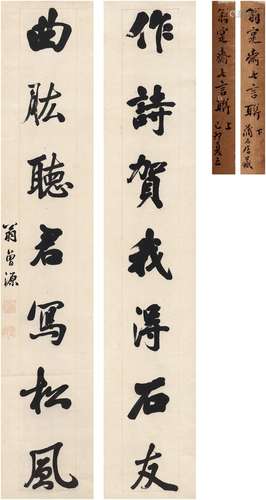 作詩賀我得石友
曲肱聽君寫松風
翁曾源
翁定齋七言聯 下
翁定齋七言聯 上
己卯夏立